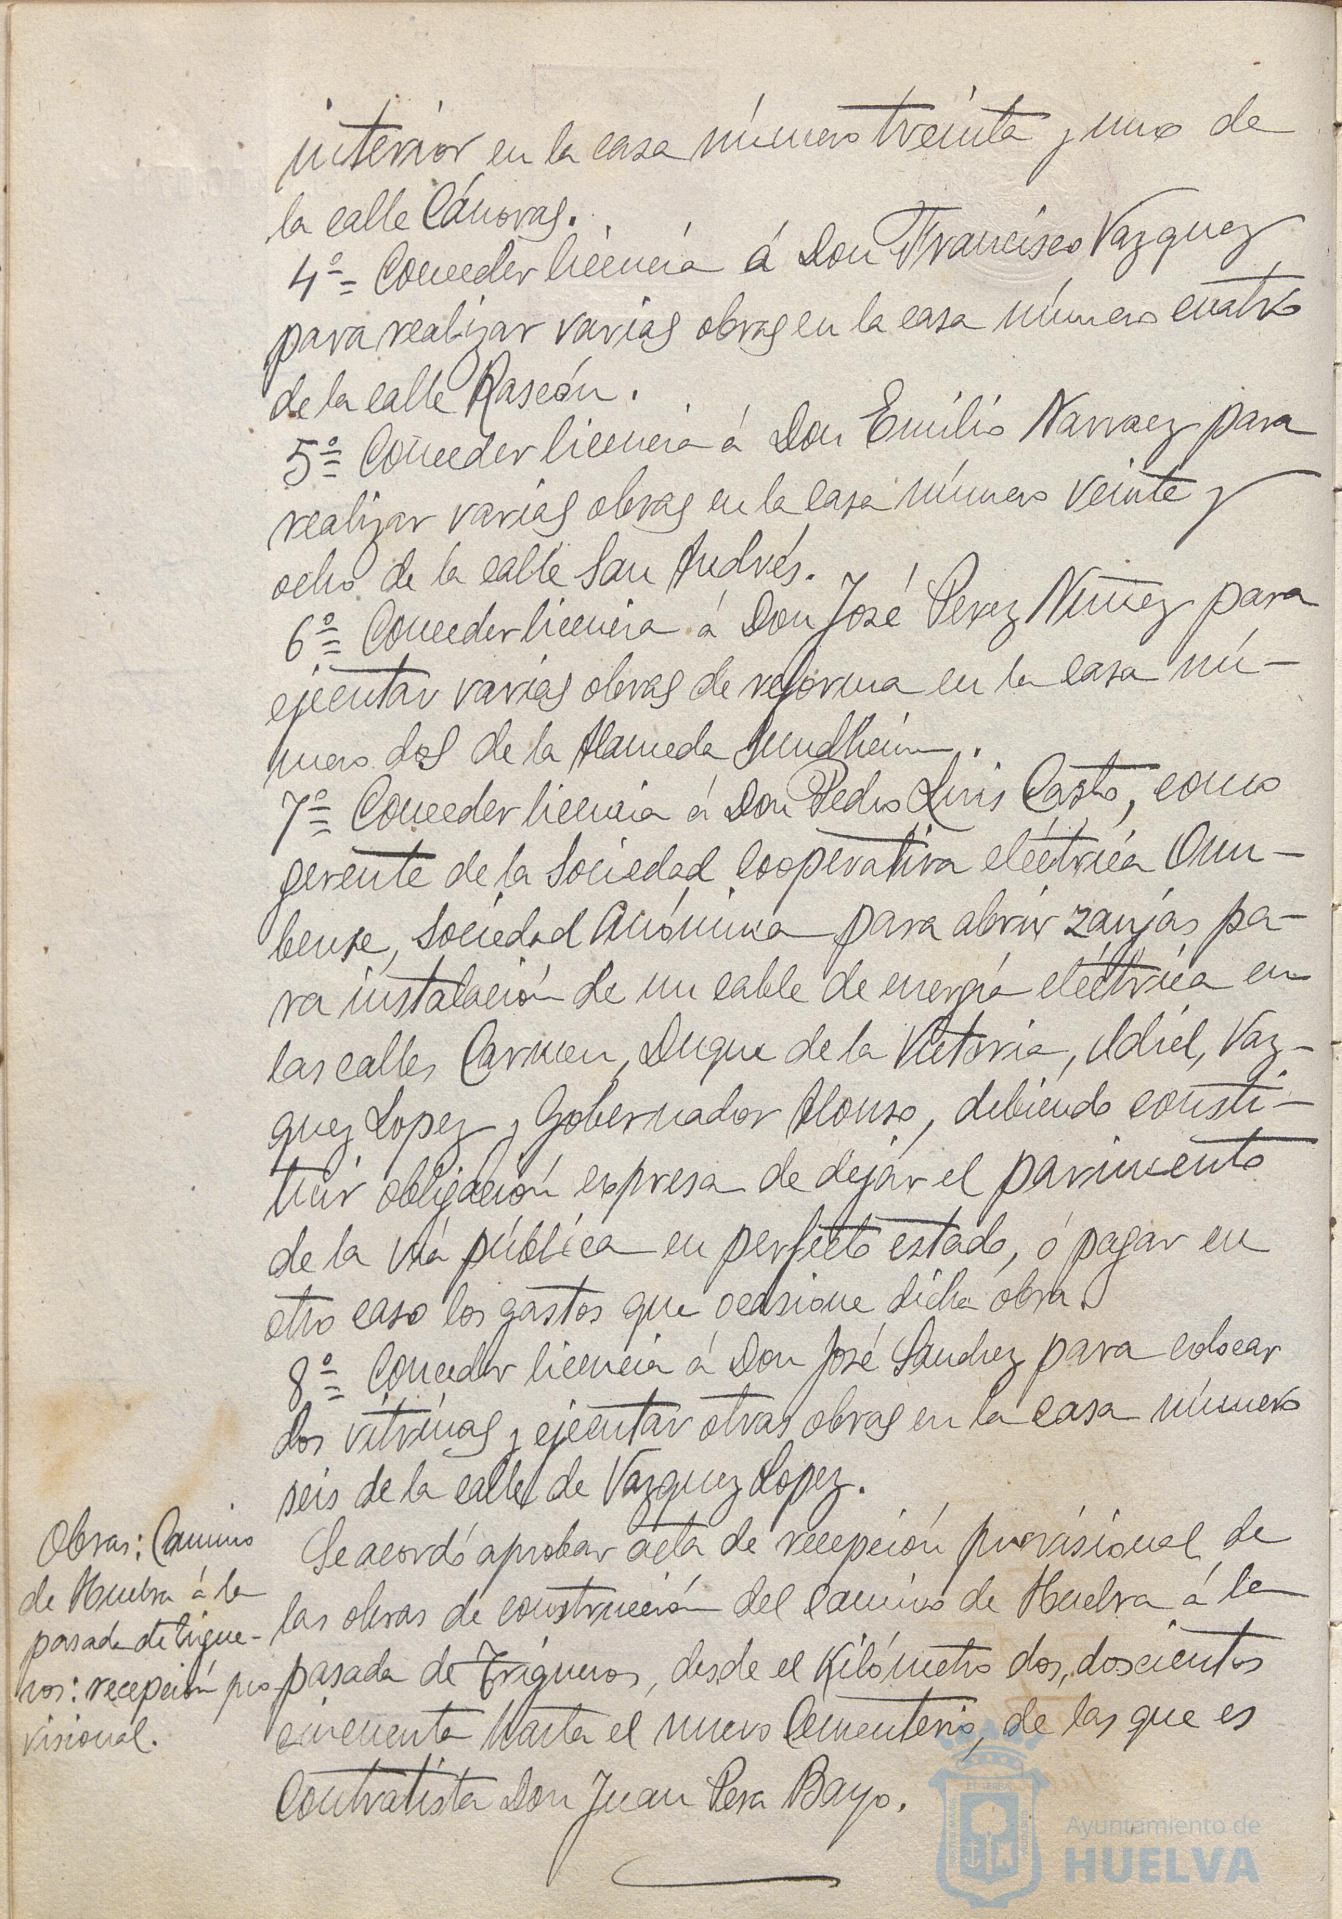 interior en la casa número treinta y uno de
la calle Cánovas.
4º= Conceder licencia á Don Francisco Vazquez
para realizar varias obras en la casa número cuatro
de la calle Rascón.
5º= Conceder licencia á Don Emilio Narvaez para
realizar varias obras en la casa número veinte y
ocho de la calle San Andrés.
6º= Conceder licencia á Don José Perez Nuñez para
ejecutar varias obras de reforma en la casa nú-
mero dos de la Alameda Sundheim.
7º= Conceder licencia á Don Pedro Luis Casto, como
gerente de la Sociedad Cooperativa eléctrica Onu-
bense, Sociedad Anónima para abrir zanjas pa-
ra instalación de un cable de energía eléctrica en
las calles Carmen, Duque de la Victoria, Odiel, Vaz-
quez Lopez y Gobernador Alonso, debiendo consti-
tuir obligación expresa de dejar el pavimento
de la vía pública en perfecto estado, ó pagar en
otro caso los gastos que ocasione dicha obra.
8º= Conceder licencia á Don José Sanchez para colocar
dos vitrinas y ejecutar otras obras en la casa número
seis de la calle de Vazquez Lopez.
Obras: Camino
de Huelva á la
pasada de Trigue-
ros: recepción pro
visional.
Se acordó aprobar acta de recepción provisional de
las obras de construcción del camino de Huelva á la
pasada de Trigueros, desde el Kilómetro dos, doscientos
cincuenta hasta el nuevo Cementerio, de las que es
Contratista Don Juan Pera Bayo.
Ayuntamiento de
HUELVA